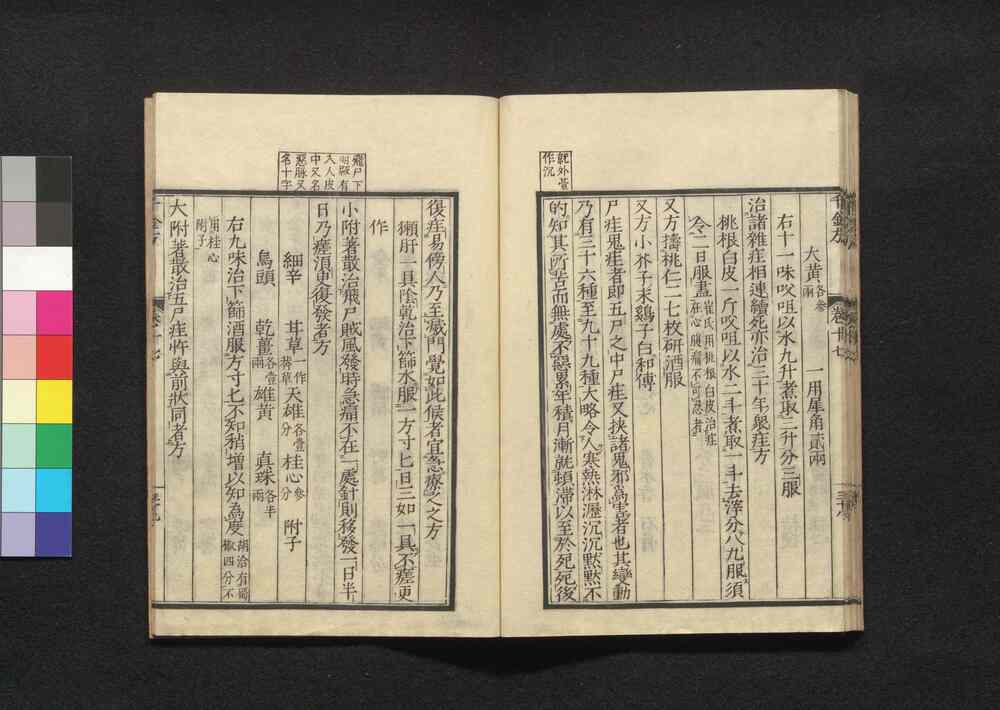 大黄各參兩　一用犀角貳兩
右十一味㕮咀以水九升煮取三升分三服
治諸雜疰相連續死亦治三十年衆疰方
桃根白皮一斤㕮咀以水二斗煮取一斗去滓分八九服須
令二日服盡崔氏用桃根白皮治疰在心腹痛不可忍者
又方擣桃仁二七枚研酒服
又方小芥子末鷄子白和傅
尸疰鬼疰者即五尸之中尸疰又挾諸鬼邪爲害者也其變動
乃有三十六種至九十九種大略令人寒熱淋瀝沉沉默默不
的知其所苦而無處不惡累年積月漸就頓滯以至於死死後
就外臺作沉
復疰易傍人乃至滅門覺如此候者宜急療之之方
獺肝一具陰乾治下篩水服一方寸匕日三如一具不瘥更
作
小附著散治飛尸賊風發時急痛不在一處針則移發一日半
日乃瘥須臾復發者方
細辛　甘草一作莽草　天雄各壹分　桂心參分　附子
烏頭　乾薑各壹兩　雄黄　真珠各半兩
右九味治下篩酒服方寸匕不知稍增以知爲度胡洽有蜀椒四分不
用桂心附子
大附著散治五尸疰忤與前狀同者方
飛尸下
明版有
入人皮
中又名
惡脉又
名十字
千金方
卷十七